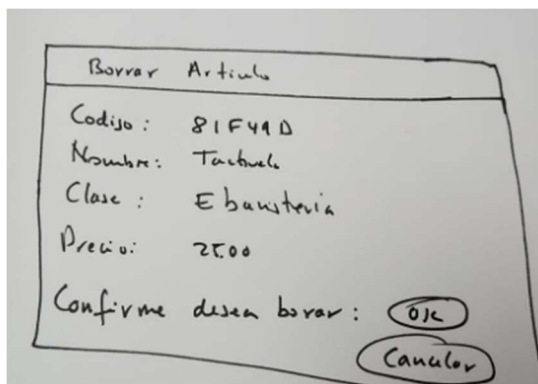 Borrar Articulo
Codigo: 81F49D
Nombre: Tachuela
Clase: Ebanisteria
Precio: 25.00
Confirme desea borrar: Ok
Cancelar